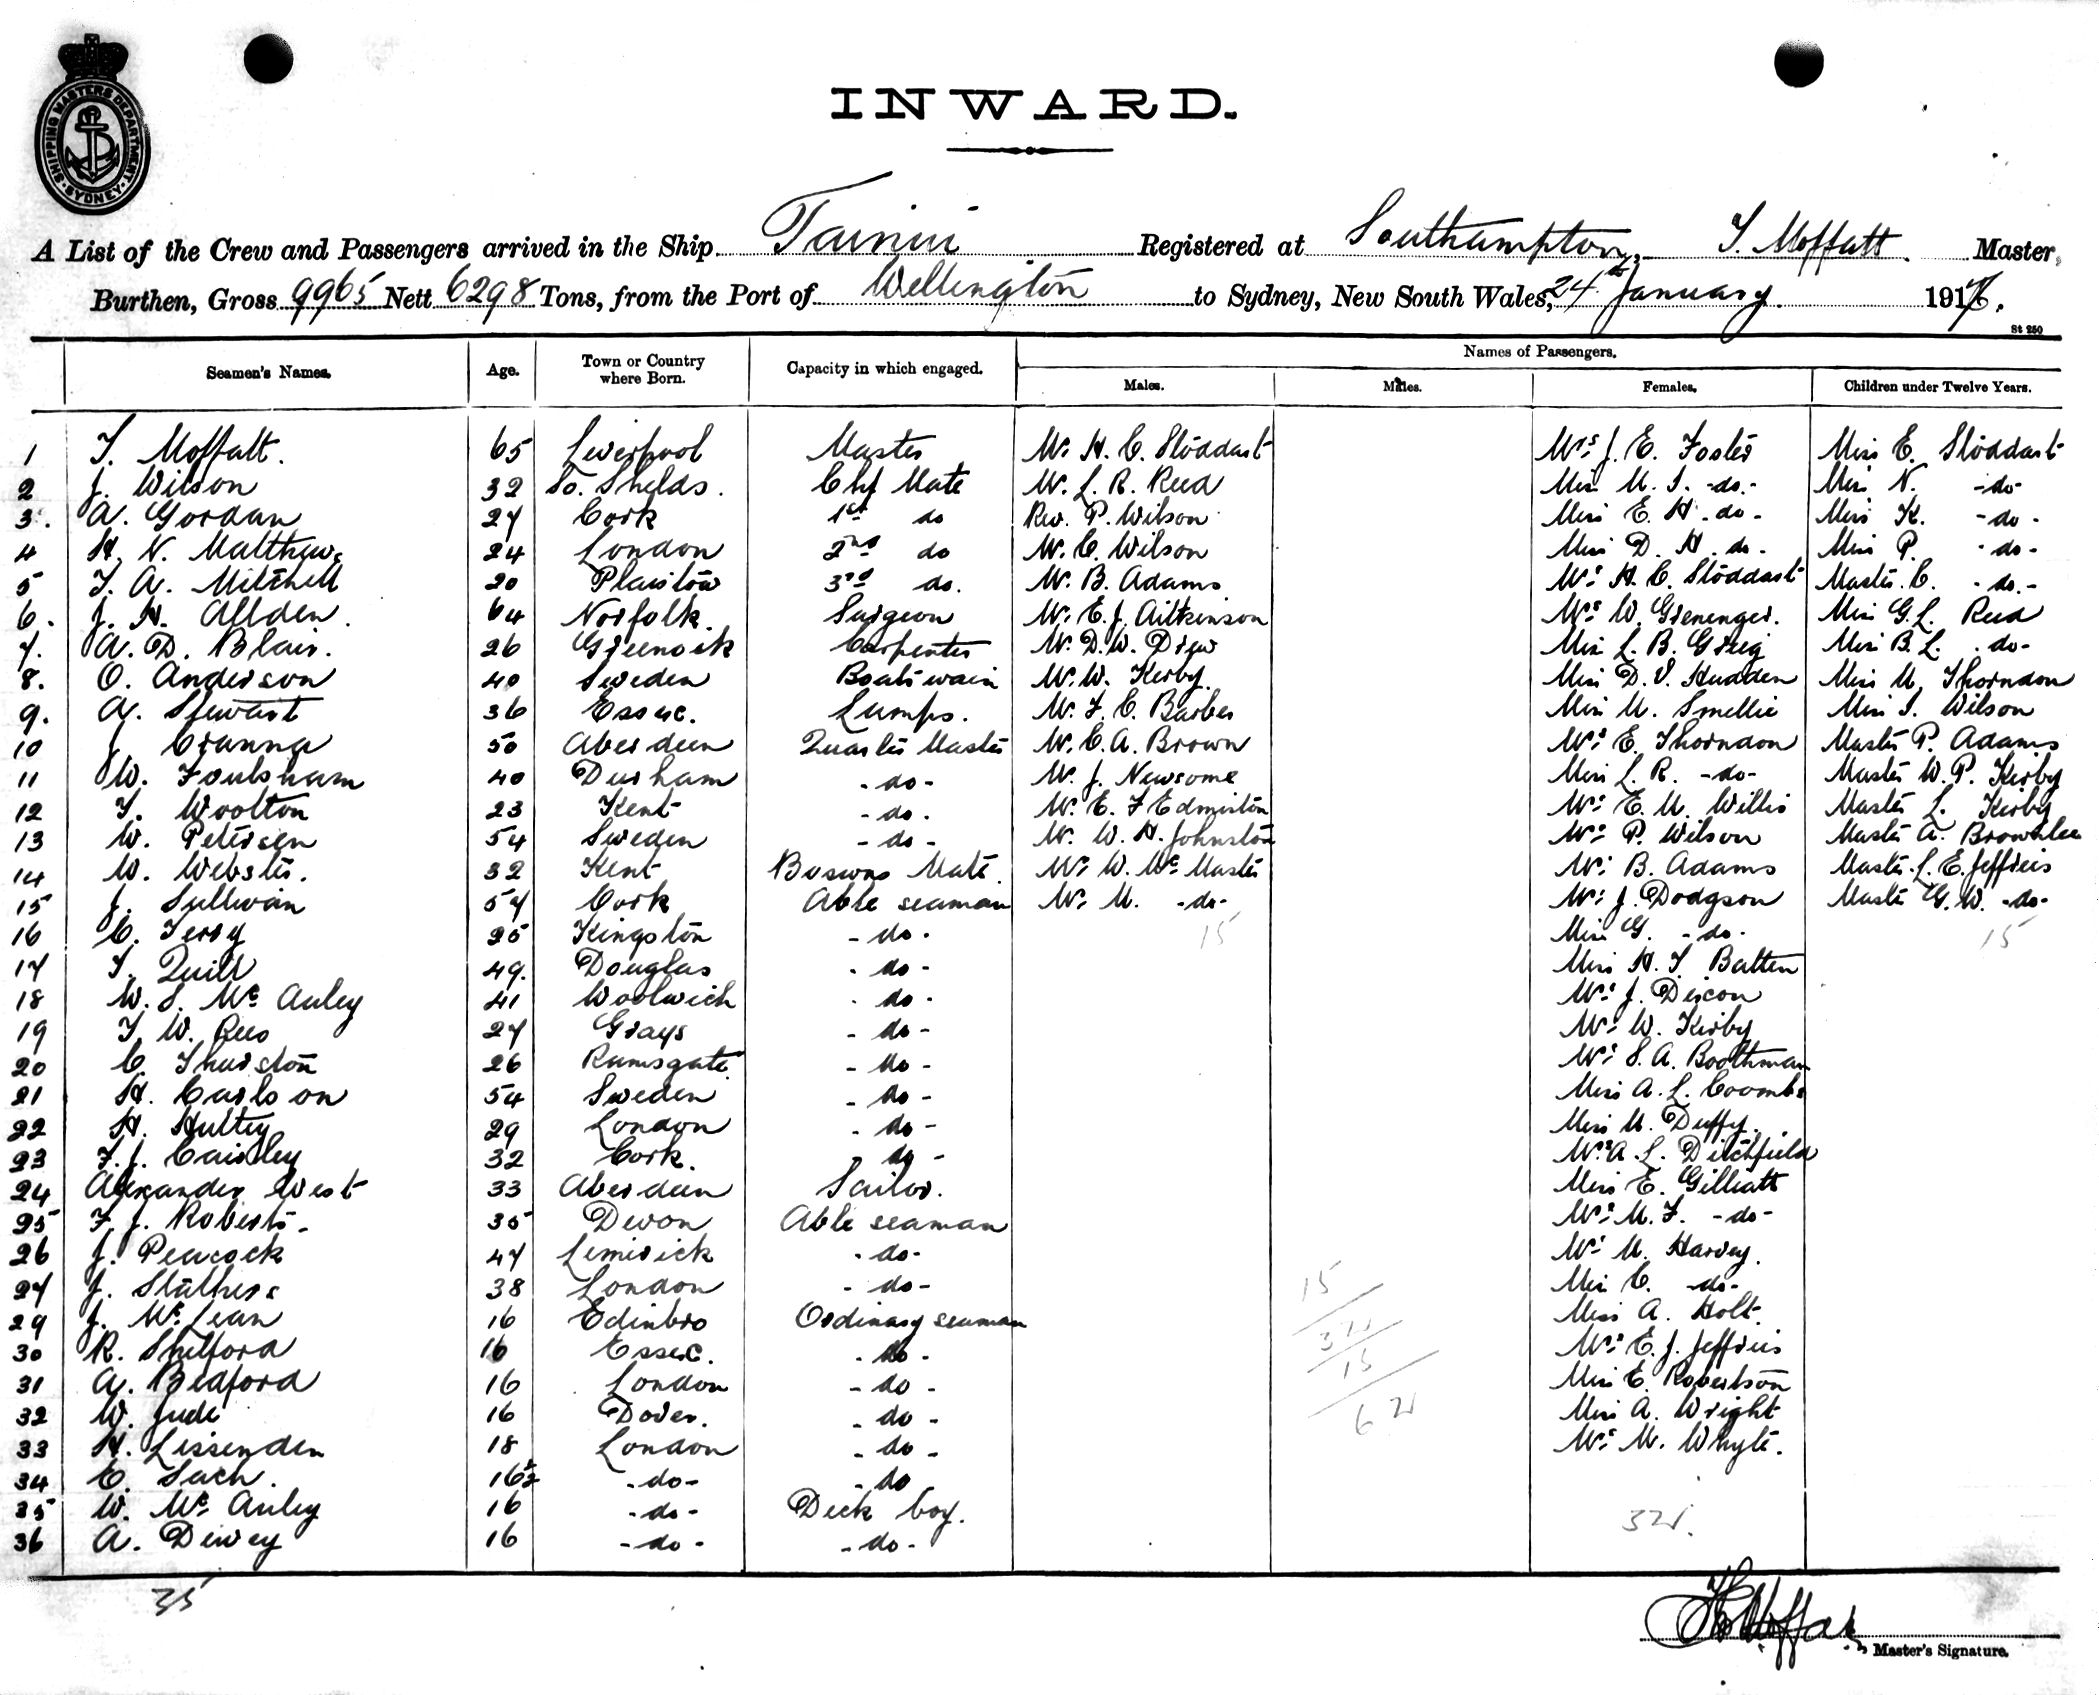 SHIPPING MASTERS DEPARTMENT
SYDNEY
INWARD.
A List of the Crew and Passengers arrived in the Ship Tainui Registered at Southampton, T. Moffatt. Master,
Burthen, Gross 9965 Nett 6298 Tons, from the Port of Wellington to Sydney, New South Wales, 24th January. 191
St 250
Names of Passengers.
Seamen's Names. Age. Town or Country where Born. Capacity in which engaged. Males. Males. Females. Children under Twelve Years.
1 T. Moffatt. 65 Liverpool Master Mr. H. C. Stoddart Mrs. J. E. Foster Miss E. Stoddart
2 J. Wilson 32 So. Shelds. Chf Mate Mr. L. R. Reed Miss M. I. -do- Miss N. -do-
3. A. Gordan 27 Cork 1st do Rev. P. Wilson Miss E. H. -do- Miss K. -do-
4 H. N. Matthews 24 London 2nd do Mr. C. Wilson Miss D. H. do- Miss P. -do-
5 T. A. Mitchell 20 Plaistow 3rd do. Mr. B. Adams Mrs. H. C. Stoddart Master C. -do-
6. J. H. Allden. 64 Norfolk. Surgeon Mr. E. J. Aitkenson Mrs. W. Grenenger. Miss G. L. Reed
7. A. D. Blair. 26 Greenock Carpenter Mr. D. W. Drew Miss L. B. Greig Miss B. L. -do-
8. O. Anderson 40 Sweden Boatswain Mr. W. Kerby. Miss D. V. Hudden Miss M. Thorndon
9. A. Stewart 36 Essex. Lamps. Mr. F. C. Barber Miss M. Smellie Miss I. Wilson
10 J. Cranna 50 Aberdeen Quarter Master Mr. C. A. Brown Mrs. E. Thorndon Master P. Adams
11 W. Foulsham 40 Durham -do- Mr. J. Newsome Miss L. R. -do- Master W. P. Kerby
12 T. Woolton 23 Kent -do. Mr. E. F Edmiston Mrs. E. M. Willis Master L. Kerby
13 W. Petersen 54 Sweden -do- Mr. W. H. Johnston Mrs. P. Wilson Master A. Brownlee
14 W. Webster. 32 Kent Bosuns Mate. Mr. W. McMaster Mrs. B. Adams Master L. E. Jeffries
15 J. Sullivan 57 Cork Able seaman Mr. M. -do- Mrs. J. Dodgson Master G. W. -do-
16 C. Terry 25 Kingston -do- 15 Miss G. -do- 15
17 T. Quill 49. Douglas -do- Miss H. T. Batten
18 W. S. McAuley 41 Woolwich -do- Mrs. J. Dixon
19 T. W. Rees 27 Grays -do- Mrs. W. Kirby
20 C. Thurston 26 Ramsgate. -do- Mrs. S. A. Boothman
21 H. Carlson 54 Sweden -do- Miss A. L. Coombs
22 H. Hultey 29 London -do- Miss M. Duffy.
23 F. J. Caisley 32 Cork. do- Mrs. A. L. Ditchfield
24 Alexander West 33 Aberdeen Sailor. Miss E. Gilliatt
25 F. J. Roberts- 35 Devon Able seaman Mrs. M. F. -do-
26 J. Peacock 47 Limerick -do- Mrs. M. Harvey.
27 J. Stathers 38 London -do- Miss C. -do-
29 J. McLean 16 Edinbro Ordinary seaman Miss A. Holt.
30 R. Shelford 16 Essex. -do- Mrs. E. J. Jeffries
31 A. Bedford 16 London -do- Miss E. Robertson
32 W. Jude 16 Dover. -do- Miss A. Wright
33 H. Lissenden 18 London -do- Mrs. M. Whyte.
34 E. Sach. 16½ -do- -do
35 W. McAuley 16 -do- Deck boy.
36 A. Dewey 16 -do- -do-
15
32
15
62
32
35
Master's Signature.